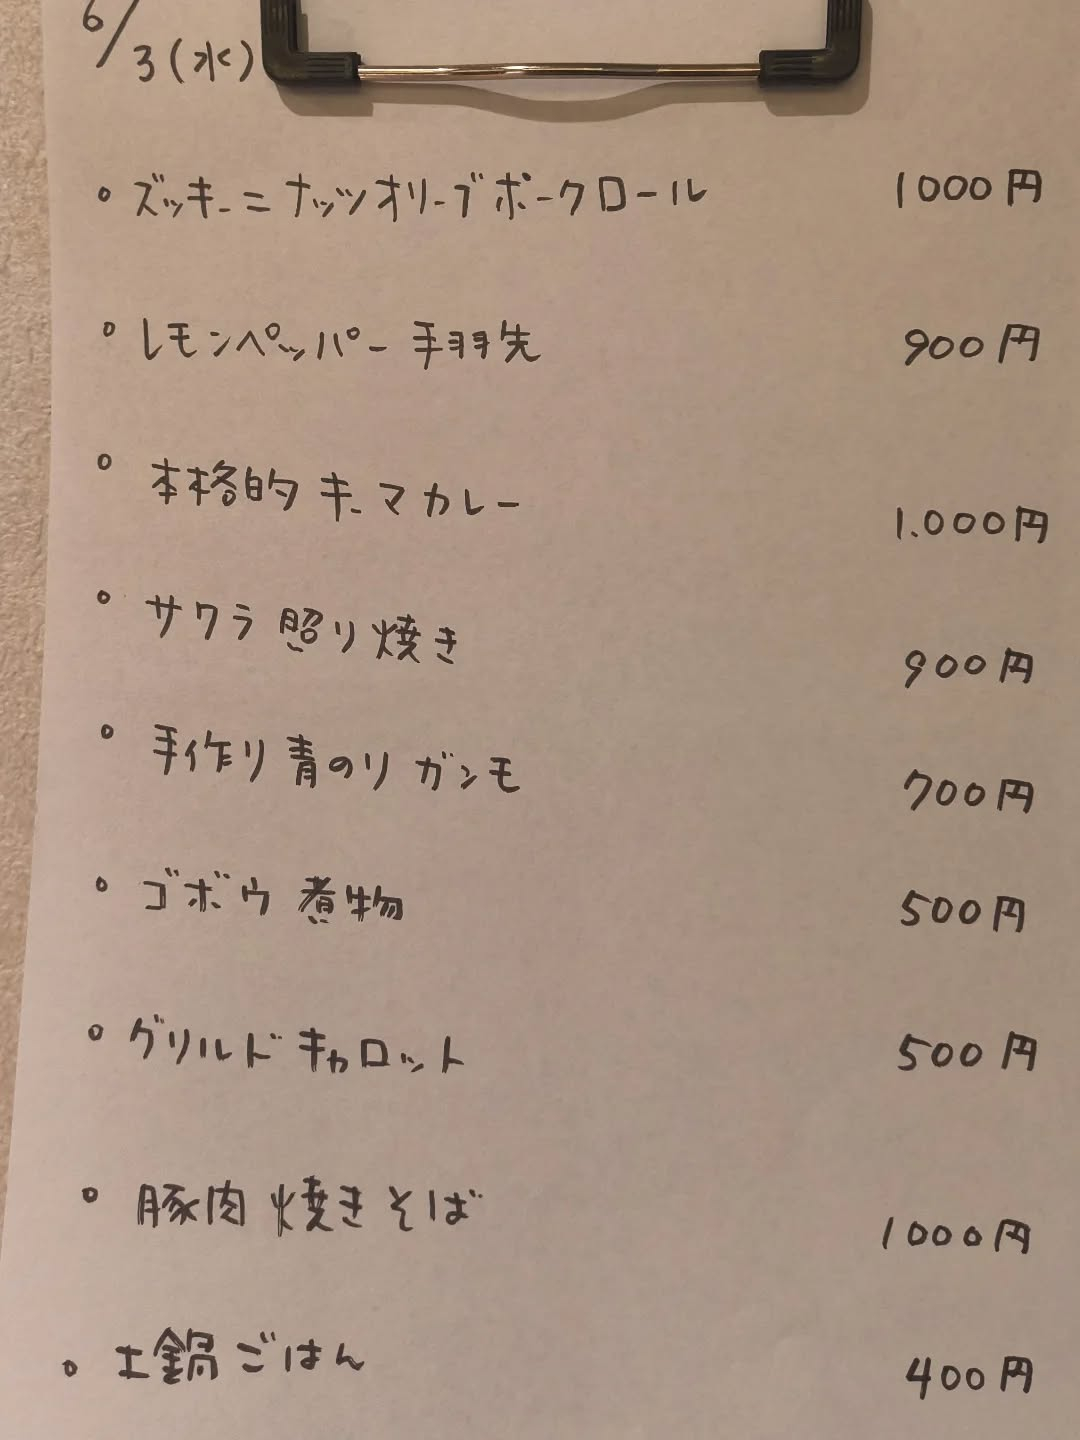 6/3(水)
○ ズッキーニナッツオリーブポークロール 1000円
○ レモンペッパー手羽先 900円
○ 本格的キーマカレー 1.000円
○ サワラ照り焼き 900円
○ 手作り青のりガンモ 700円
○ ゴボウ煮物 500円
○ グリルドキャロット 500円
○ 豚肉焼きそば 1000円
○ 土鍋ごはん 400円